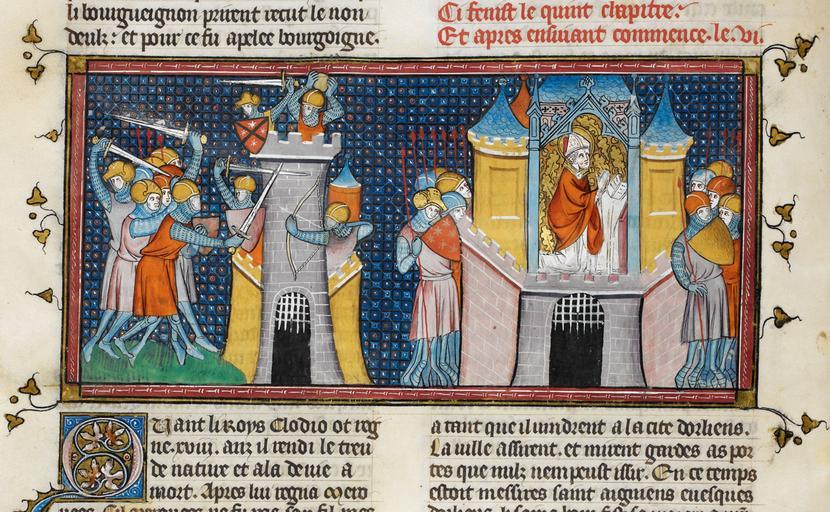 li bourgueignon prirent recut le non
deuls : et pour ce fu apelee bourgoigne.
Ci fenist le quint chapitre:
Et apres ensuiant commence . le . vi.
Quant li Roys Clodio ot reg
ne .xviii. anz il rendi le treu
de nature et ala de vie a
mort. Apres lui regna mero
a tant que il vindrent a la cite dorliens.
La ville assirent. et mirent gardes as por
tes que nulz nen peust issir. En ce temps
estoit messires saint aigniens euesques